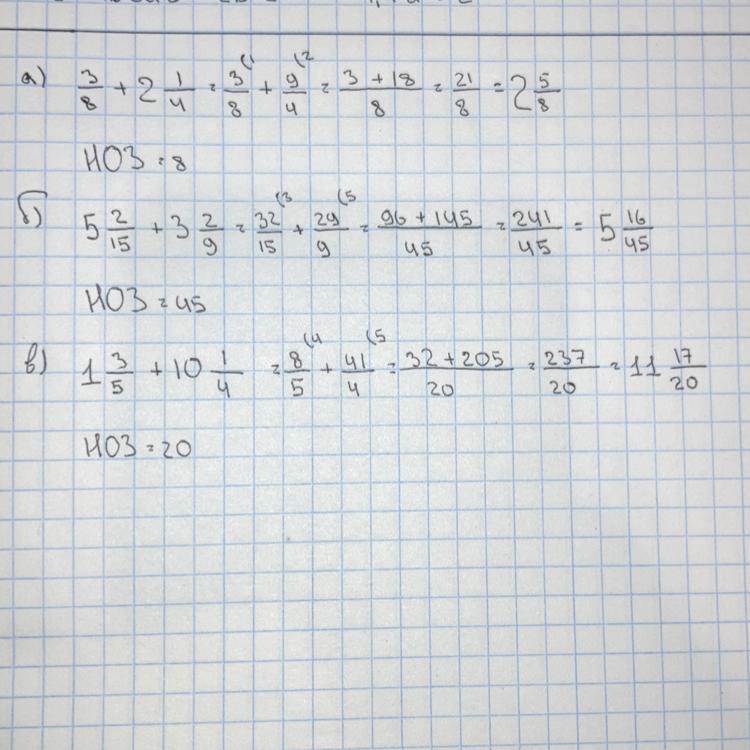 а) 3/8 + 2 1/4 = 3/8 (1 + 9/4 (2 = 3 + 18/8 = 21/8 = 2 5/8
НОЗ = 8
б) 5 2/15 + 3 2/9 = 32/15 (3 + 29/9 (5 = 96 + 145/45 = 241/45 = 5 16/45
НОЗ = 45
в) 1 3/5 + 10 1/4 = 8/5 (4 + 41/4 (5 = 32 + 205/20 = 237/20 = 11 17/20
НОЗ = 20